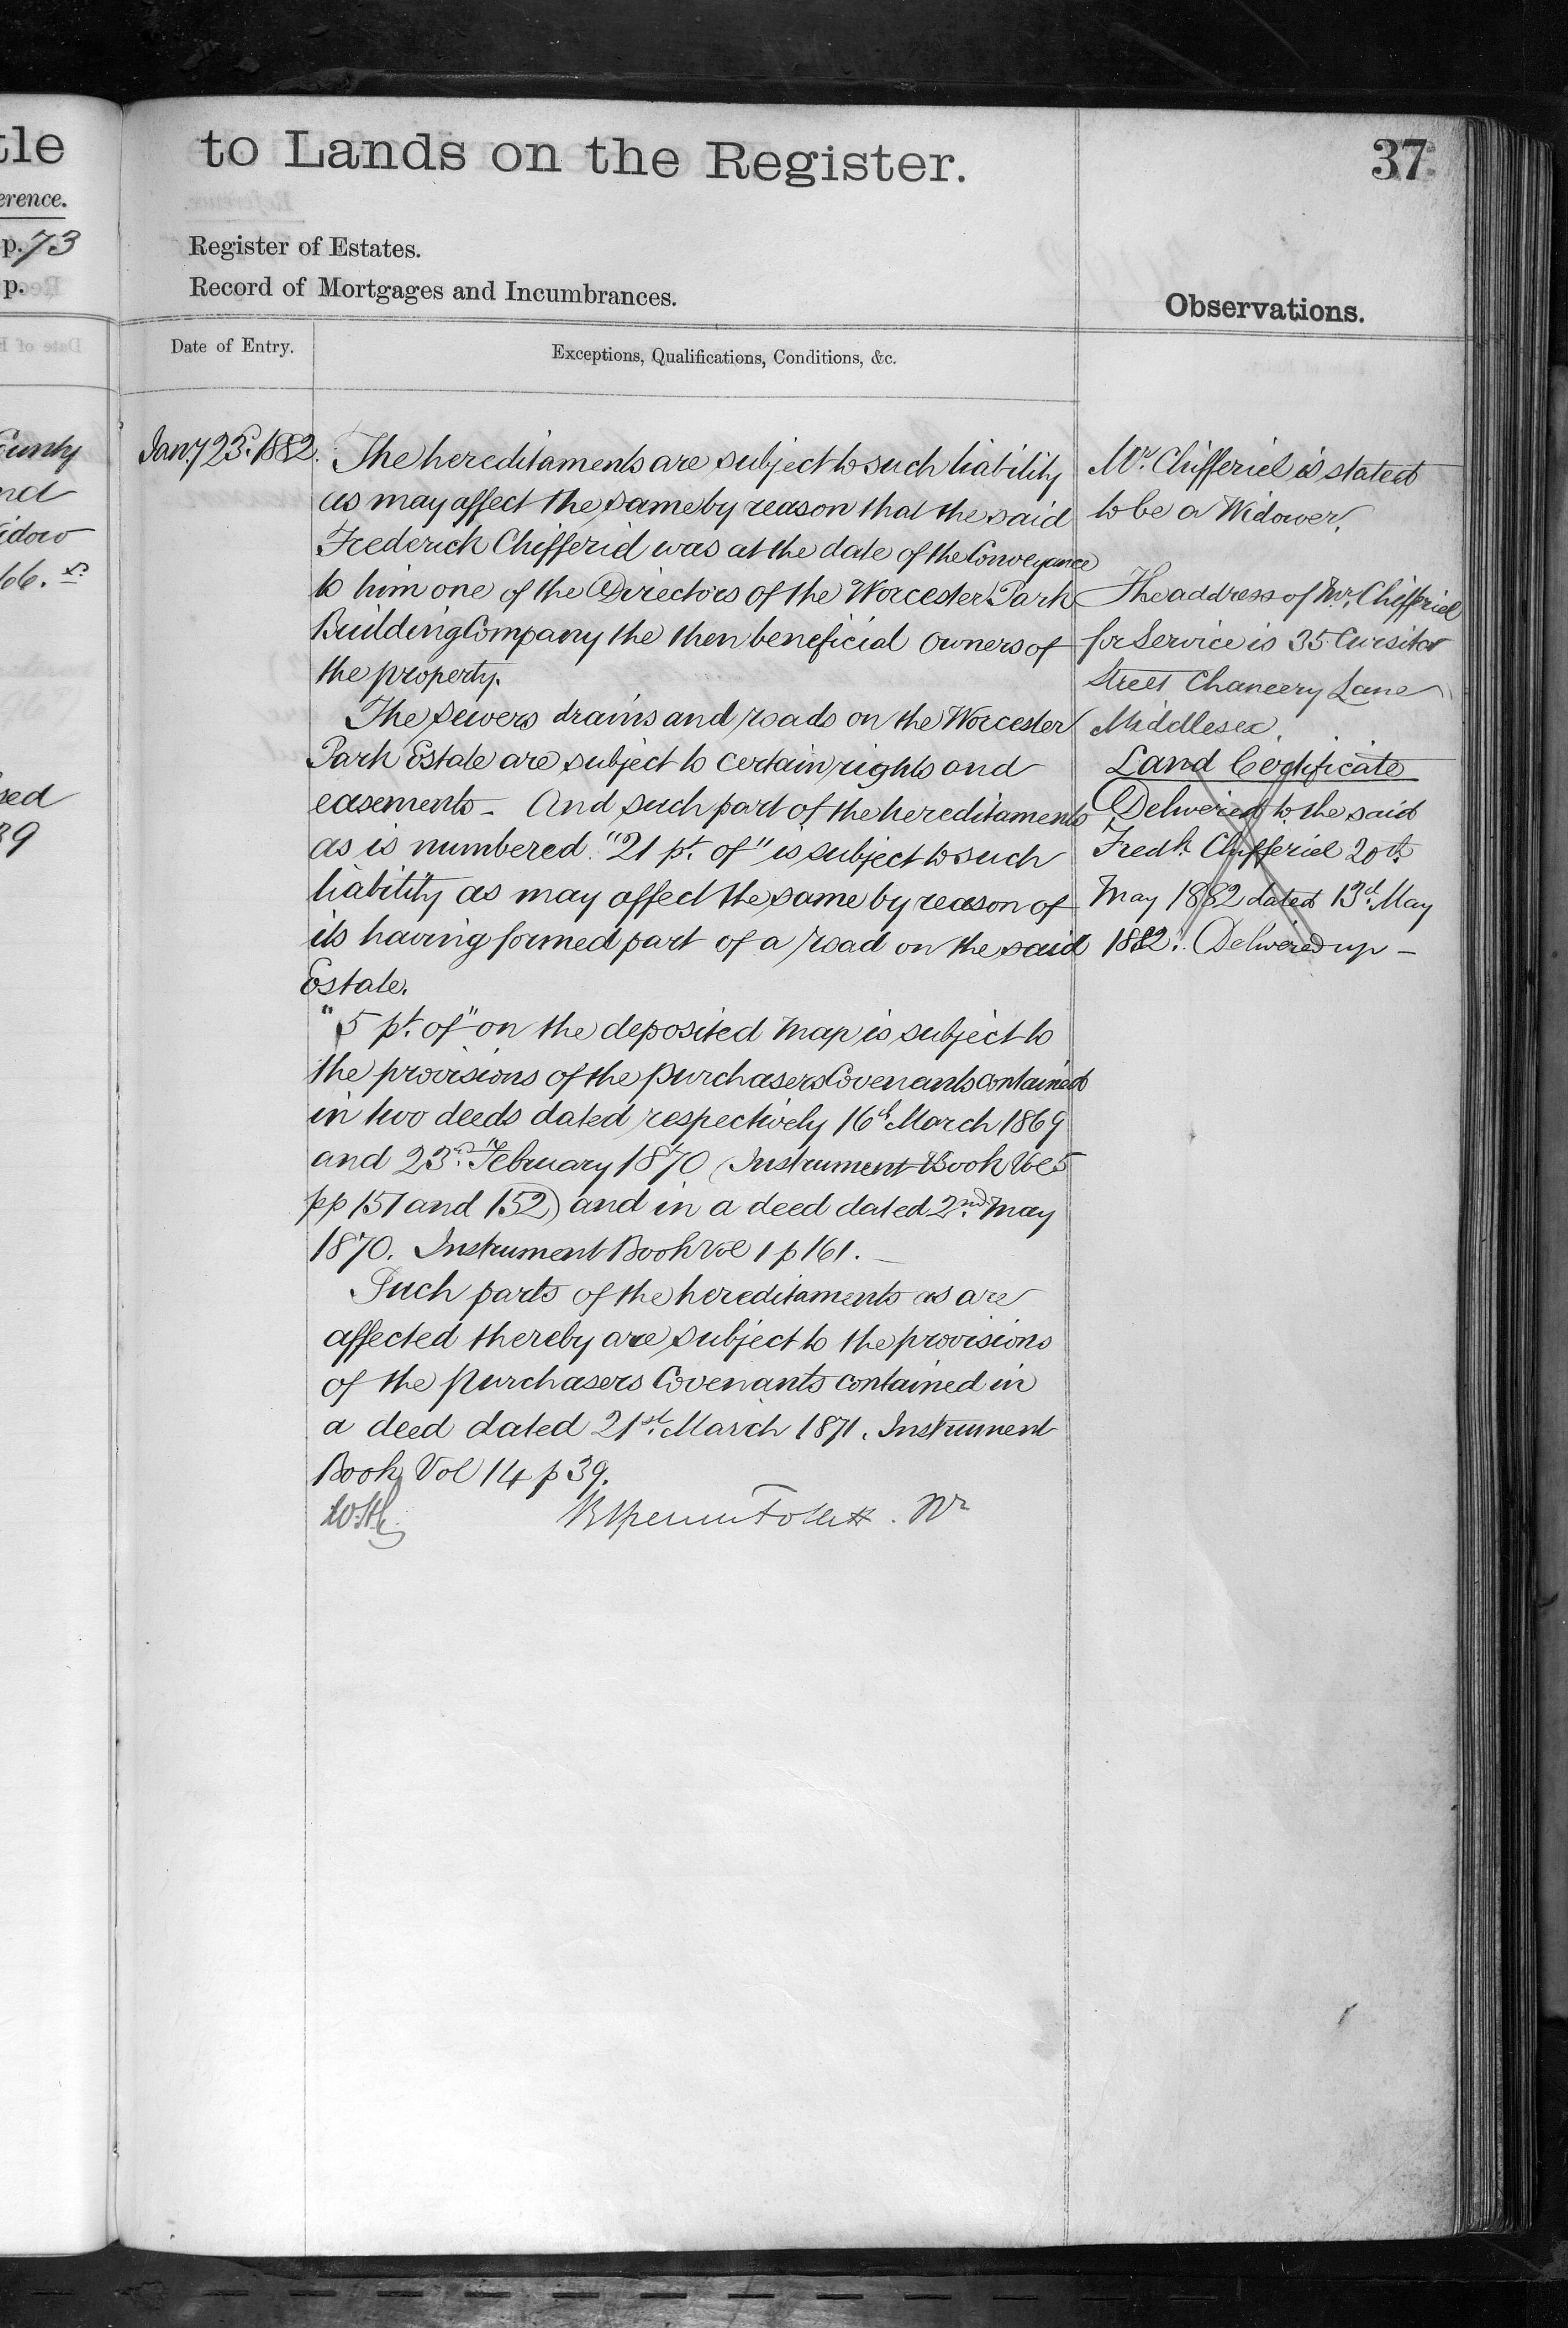 tle
erence.
p. 73
p.
County
nd
idow
66.
sed
39
to Lands on the Register.
37
Register of Estates.
Record of Mortgages and Incumbrances.
Observations.
Date of Entry.
Exceptions, Qualifications, Conditions, &c.
Jany 23d. 1882.
The hereditaments are subject to such liability
as may affect the same by reason that the said
Frederick Chifferiel was at the date of the Conveyance
to him one of the Directors of the Worcester Park
Building Company the then beneficial owners of
the property.
The sewers drains and roads on the Worcester
Park Estate are subject to certain rights and
easements - And such part of the hereditaments
as is numbered "21 pt. of" is subject to such
liability as may affect the same by reason of
its having formed part of a road on the said
Estate.
"5 pt. of" on the deposited map is subject to
the provisions of the purchasers Covenants contained
in two deeds dated respectively 16th March 1869
and 23d. February 1870 (Instrument Book Vol 5
pp 151 and 152) and in a deed dated 2nd. May
1870. Instrument Book Vol 1 p 161. -
Such parts of the hereditaments as are
affected thereby are subject to the provisions
of the purchasers Covenants contained in
a deed dated 21st. March 1871. Instrument
Book Vol 14 p 39.
Mr. Chifferiel is stated
to be a Widower.
The address of Mr. Chifferiel
for Service is 35 Cursitor
Street Chancery Lane
Middlesex.
Land Certificate
Delivered to the said
Fredk. Chifferiel 20th.
May 1882 dated 13d. May
1882. Delivered up -